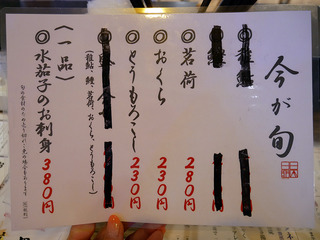 今が旬
◎稚鮎
◎鱧
◎茗荷 280円
◎おくら 230円
◎とうもろこし 230円
◎
(稚鮎、鱧、茗荷、おくら、とうもろこし)
〈一品〉
◎水茄子のお刺身 380円